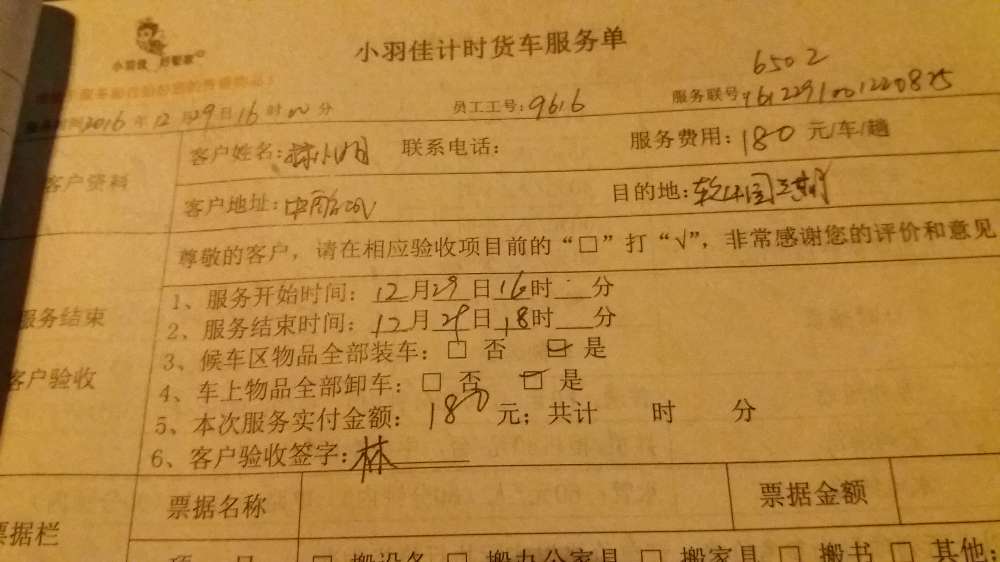 小羽佳 好管家
小羽佳计时货车服务单
6502
2016年12月29日16时00分 员工工号:9616 服务联号
客户资料
客户姓名: 联系电话: 服务费用:180元/车/趟
客户地址: 目的地:软件园三期
尊敬的客户，请在相应验收项目前的“□”打“√”，非常感谢您的评价和意见
服务结束
客户验收
1、服务开始时间:12月29日16时 分
2、服务结束时间:12月29日18时 分
3、候车区物品全部装车:□ 否 ☑ 是
4、车上物品全部卸车:□ 否 ☑ 是
5、本次服务实付金额:180元;共计 时 分
6、客户验收签字:林
票据栏
票据名称 票据金额
项 目 □ 搬设备 □ 搬办公家具 □ 搬家具 □ 搬书 □ 其他: